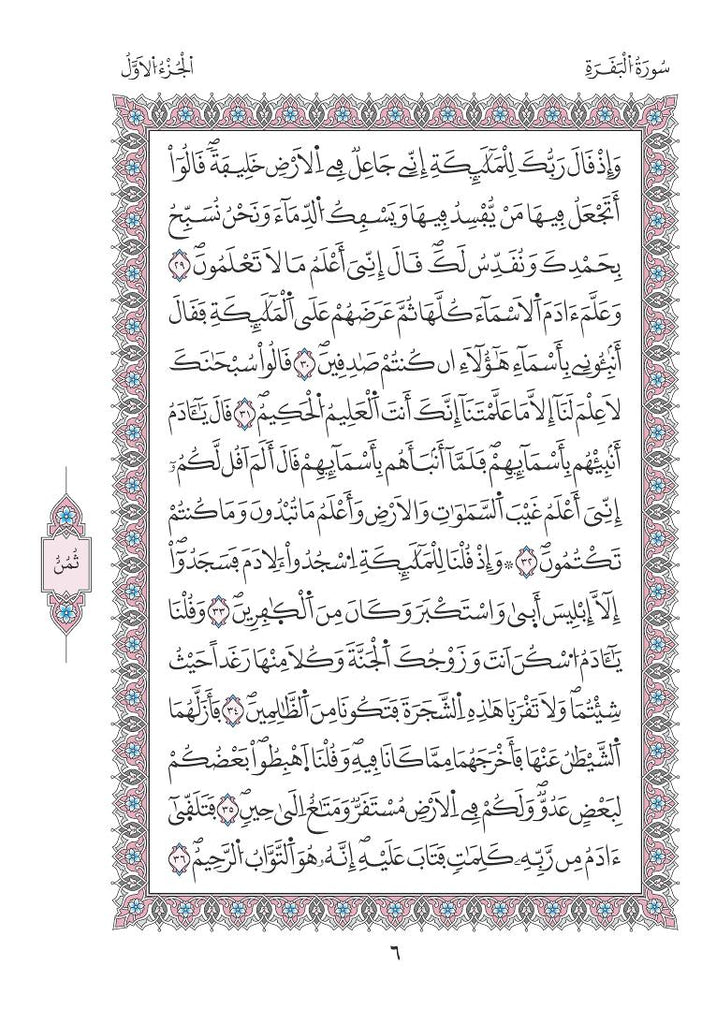 سُورَةُ اُ۬لْبَقَرَةِ
اَ۬لْجُزْءُ اُ۬لَاوَّلُ
وَإِذْ قَالَ رَبُّكَ لِلْمَلَٰٓئِكَةِ إِنِّے جَاعِلٞ فِے اِ۬لَارْضِ خَلِيفَةٗۖ قَالُوٓاْ
أَتَجْعَلُ فِيهَا مَنْ يُّفْسِدُ فِيهَا وَيَسْفِكُ اُ۬لدِّمَآءَ وَنَحْنُ نُسَبِّحُ
بِحَمْدِكَ وَنُقَدِّسُ لَكَۖ قَالَ إِنِّيَ أَعْلَمُ مَا لَا تَعْلَمُونَۖ ٢٩
وَعَلَّمَ ءَادَمَ اَ۬لَاسْمَآءَ كُلَّهَا ثُمَّ عَرَضَهُمْ عَلَى اَ۬لْمَلَٰٓئِكَةِ فَقَالَ
أَنۢبِـُٔونِے بِأَسْمَآءِ هَٰٓؤُلَآءِ ان كُنتُمْ صَٰدِقِينَۖ ٣٠ قَالُواْ سُبْحَٰنَكَ
لَا عِلْمَ لَنَآ إِلَّا مَا عَلَّمْتَنَآ إِنَّكَ أَنتَ اَ۬لْعَلِيمُ اُ۬لْحَكِيمُۖ ٣١ قَالَ يَٰٓـَٔادَمُ
أَنۢبِئْهُم بِأَسْمَآئِهِمْۖ فَلَمَّآ أَنۢبَأَهُم بِأَسْمَآئِهِمْ قَالَ أَلَمَ اَقُل لَّكُمُۥٓ
إِنِّيَ أَعْلَمُ غَيْبَ اَ۬لسَّمَٰوَٰتِ وَالَارْضِ وَأَعْلَمُ مَا تُبْدُونَ وَمَا كُنتُمْ
تَكْتُمُونَۖ ٣٢ ۞ وَإِذْ قُلْنَا لِلْمَلَٰٓئِكَةِ اِ۟سْجُدُواْ لِأدَمَ فَسَجَدُوٓاْ
إِلَّآ إِبْلِيسَ أَب۪يٰ وَاسْتَكْبَرَ وَكَانَ مِنَ اَ۬لْكٰ۪فِرِينَۖ ٣٣ وَقُلْنَا
يَٰٓـَٔادَمُ اُ۟سْكُنَ اَنتَ وَزَوْجُكَ اَ۬لْجَنَّةَ وَكُلَا مِنْهَا رَغَداً حَيْثُ
شِئْتُمَاۖ وَلَا تَقْرَبَا هَٰذِهِ اِ۬لشَّجَرَةَ فَتَكُونَا مِنَ اَ۬لظَّٰلِمِينَۖ ٣٤ فَأَزَلَّهُمَا
اَ۬لشَّيْطَٰنُ عَنْهَا فَأَخْرَجَهُمَا مِمَّا كَانَا فِيهِۖ وَقُلْنَا اَ۪هْبِطُواْۖ بَعْضُكُمْ
لِبَعْضٍ عَدُوّٞۖ وَلَكُمْ فِے اِ۬لَارْضِ مُسْتَقَرّٞ وَمَتَٰعٌ اِلَىٰ حِينٖۖ ٣٥ فَتَلَقّ۪ىٰٓ
ءَادَمُ مِن رَّبِّهِۦ كَلِمَٰتٖ فَتَابَ عَلَيْهِۖ إِنَّهُۥ هُوَ اَ۬لتَّوَّابُ اُ۬لرَّحِيمُۖ ٣٦
ثُمُنُ
٦